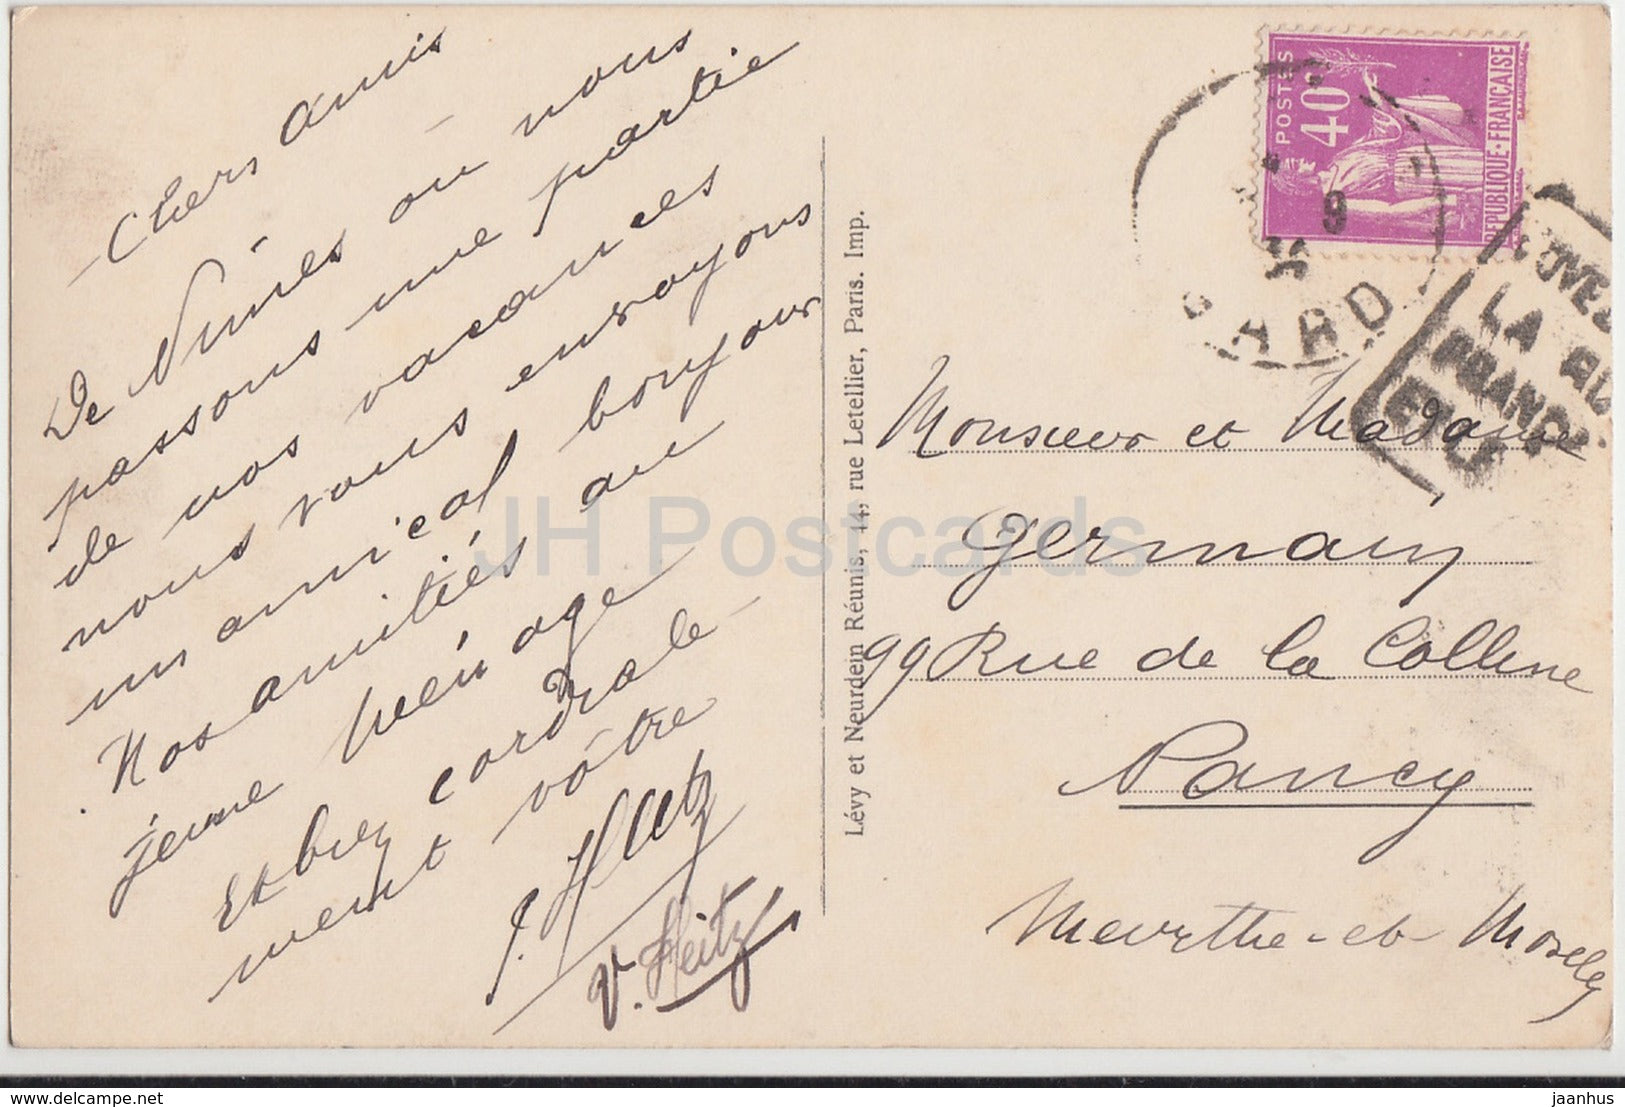 Chers amis
De Nîmes où nous
passons une partie
de nos vacances
nous vous envoyons
un amical bonjour
Nos amitiés au
jeune ménage
Et bien cordiale-
ment vôtre
J. Heitz
V. Heitz
Lévy et Neurdein Réunis, 44, rue Letellier, Paris. Imp.
POSTES
40c
REPUBLIQUE·FRANÇAISE
9
35
GARD
LA
Monsieur et Madame
Germain
99 Rue de la Colline
Nancy
Meurthe-et-Moselle
JH Postcards
delcampe.net
jaanhus